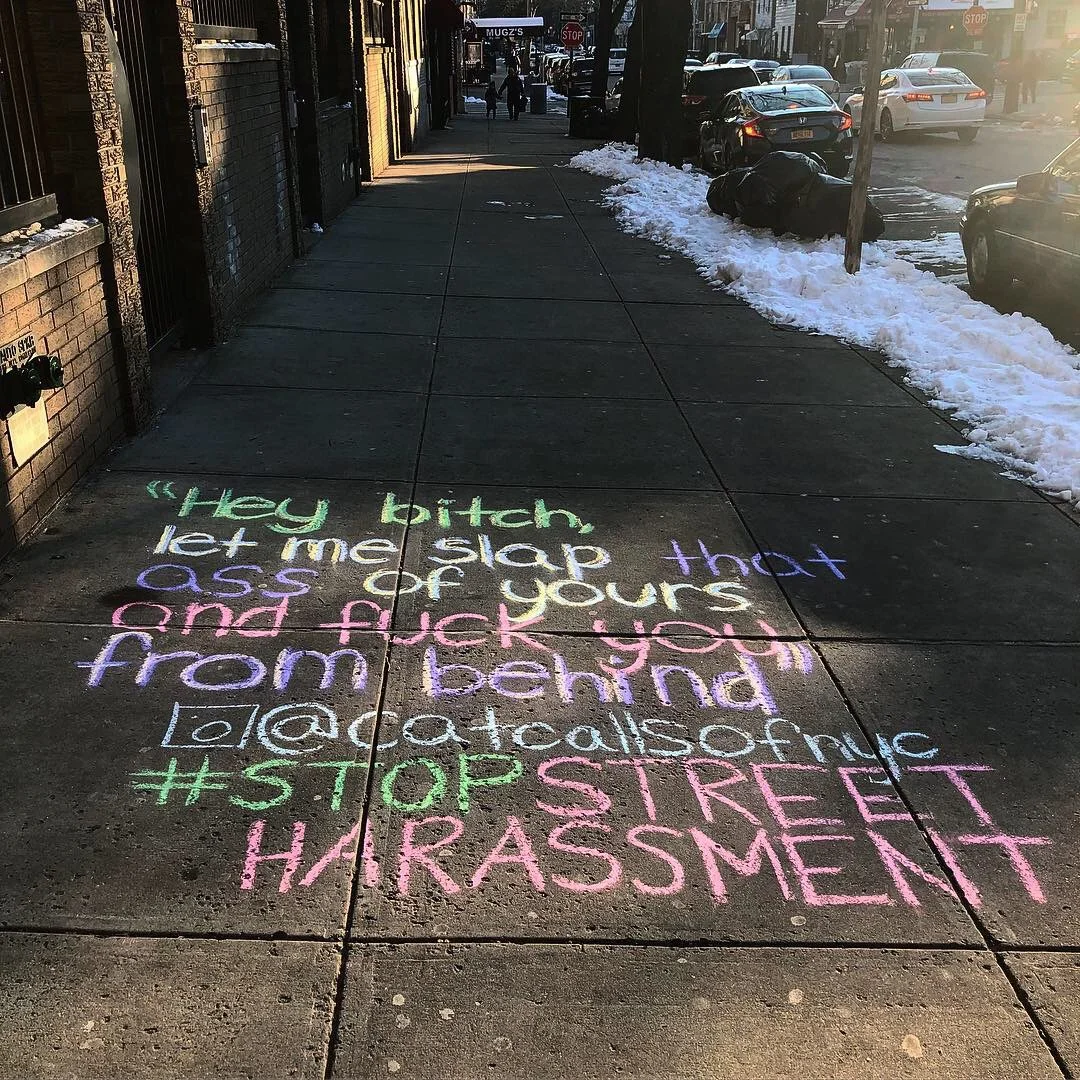 MUGZ'S
STOP
STOP
"Hey bitch,
let me slap that
ass of yours
and fuck you
from behind"
@catcallsofnyc
#STOPSTREET
HARASSMENT